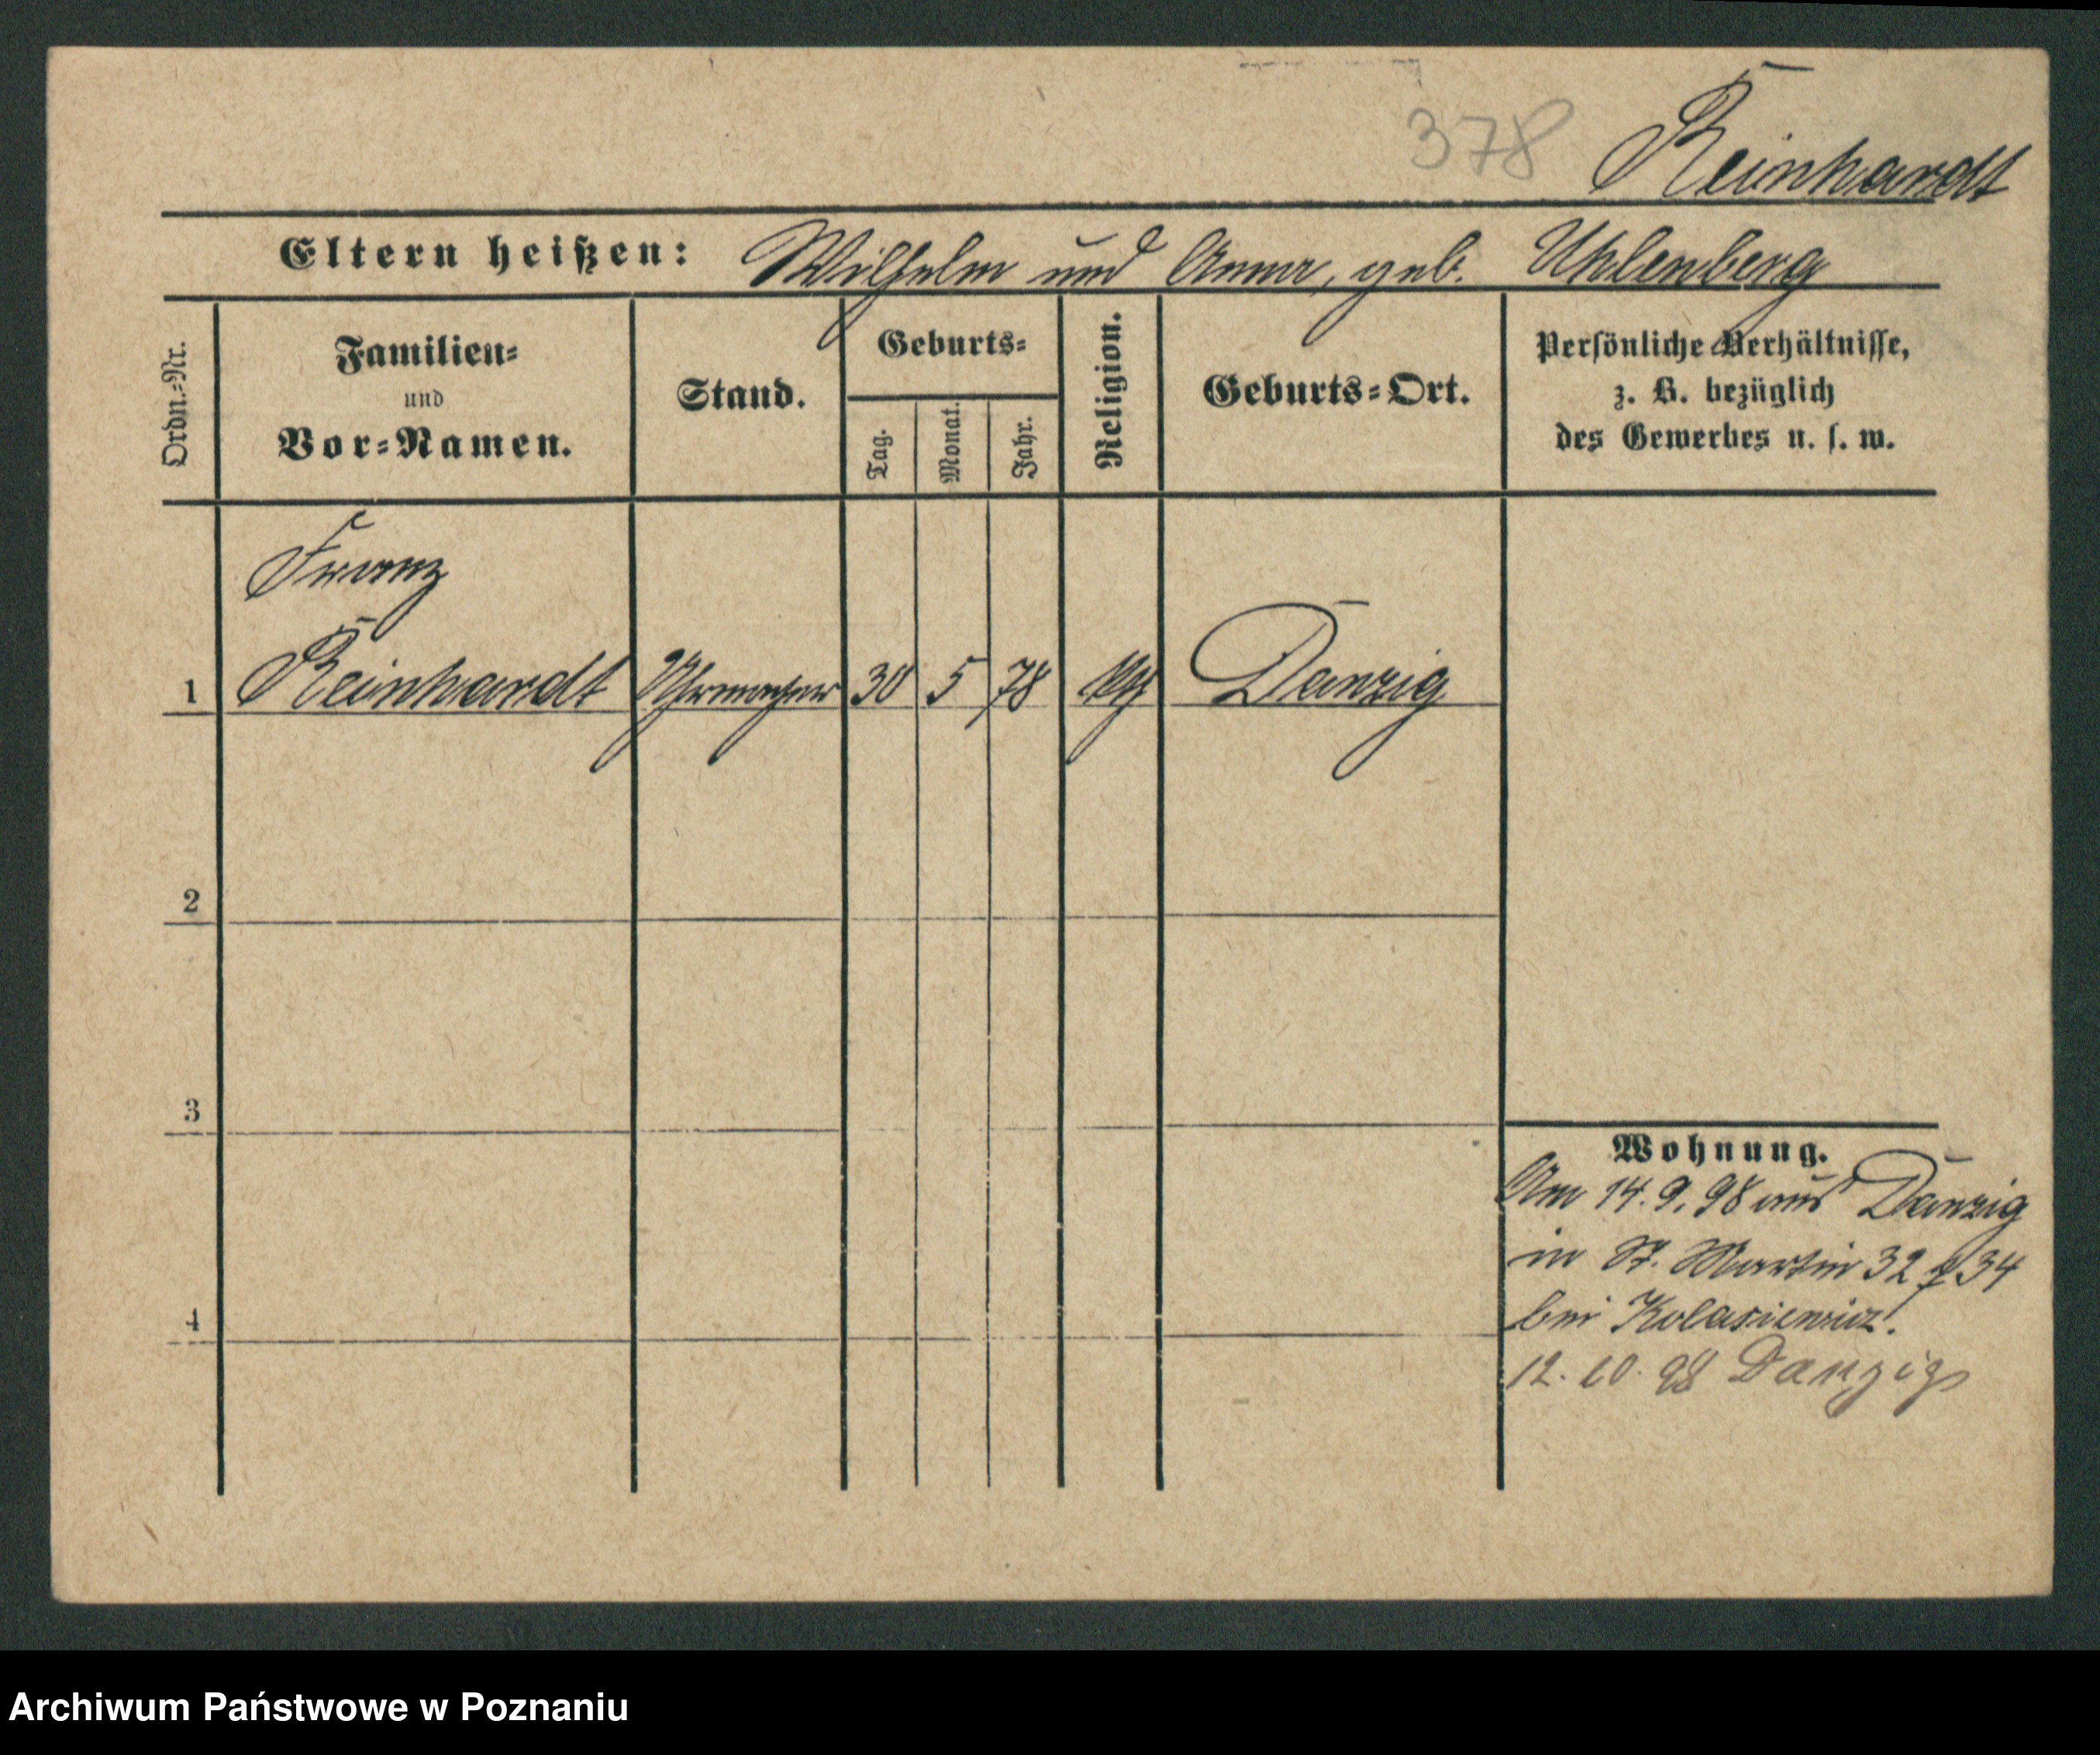 378 Reinhardt
Eltern heißen: Wilhelm und Anna, geb. Uhlenberg
Ordn.-Nr.
Familien-
und
Vor-Namen.
Stand.
Geburts-
Tag.
Monat.
Jahr.
Religion.
Geburts-Ort.
Persönliche Verhältnisse,
z. B. bezüglich
des Gewerbes u. s. w.
Franz
1 Reinhardt Uhrmacher 30 5 78 Danzig
2
3
4
Wohnung.
Am 14.9.98 aus Danzig
in St. Martin 32 34
bei Kolasiewicz.
12.10.98 Danzig
Archiwum Państwowe w Poznaniu